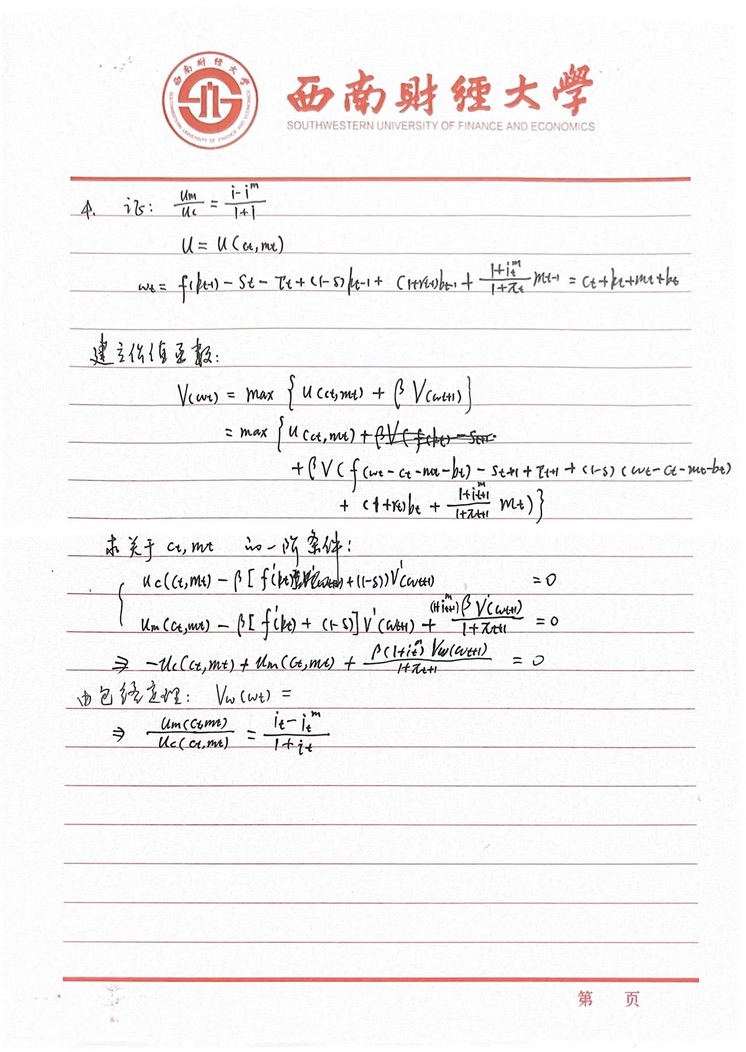 西南财经大学
西南财經大學
SOUTHWESTERN UNIVERSITY OF FINANCE AND ECONOMICS
4. 证: u_m/u_c = (i-i^m)/(1+1)
U = U(c_t,m_t)
w_t = f(k_{t-1}) - S_t - τ_t + (1-δ)k_{t-1} + (1+r_{t-1})b_{t-1} + (1+i_t^m)/(1+π_t) m_{t-1} = c_t+k_t+m_t+b_t
建立价值函数:
V(w_t) = max { u(c_t,m_t) + β V(w_{t+1}) }
= max { u(c_t,m_t) +
+ β V( f(w_t-c_t-m_t-b_t) - S_{t+1} + τ_{t+1} + (1-δ)(w_t-c_t-m_t-b_t)
+ (1+r_t)b_t + (1+i_{t+1}^m)/(1+π_{t+1}) m_t) }
求关于 c_t, m_t 的一阶条件:
u_c(c_t,m_t) - β[ f'(k_t) +(1-δ)]V'(w_{t+1}) = 0
u_m(c_t,m_t) - β[ f'(k_t) + (1-δ)] V'(w_{t+1}) + (1+i_{t+1}^m) β V'(w_{t+1})/(1+π_{t+1}) = 0
⇒ -u_c(c_t,m_t) + u_m(c_t,m_t) + β(1+i_t^m) V_w(w_{t+1})/(1+π_{t+1}) = 0
由包络定理: V_w(w_t) =
⇒ u_m(c_t,m_t)/u_c(c_t,m_t) = (i_t-i_t^m)/(1+i_t)
第 页